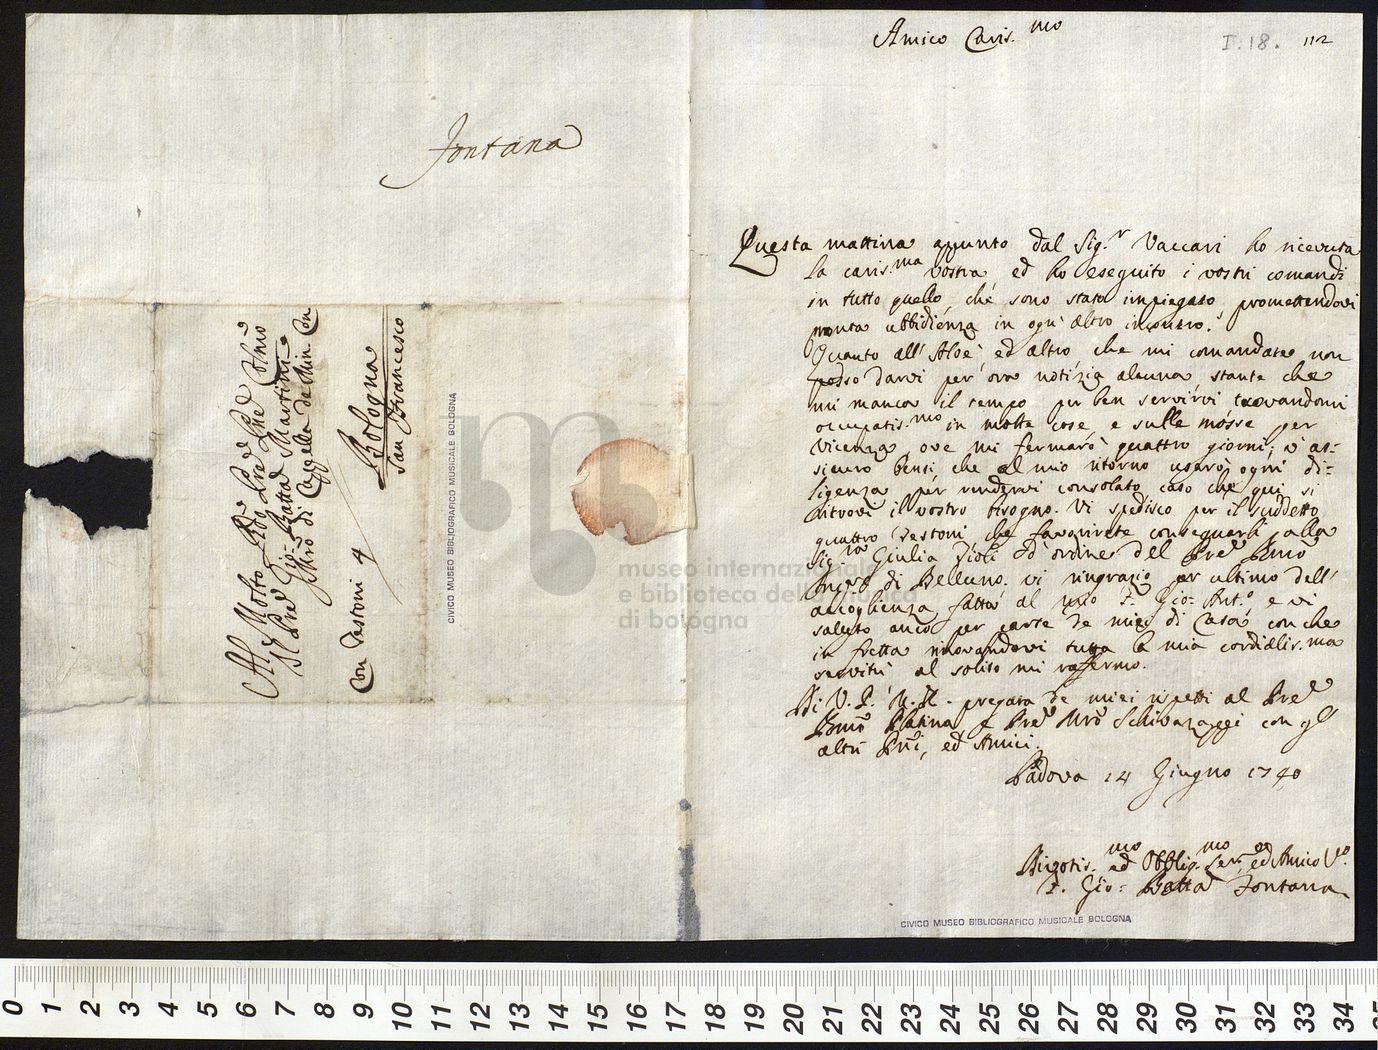 Fontana
Al Molto Rdo Pre Pre Smo
Il Pre Gio: Batta Martini
Mro di Cappella de Min. Con
Bologna
San Francesco
Con Testoni 4
CIVICO MUSEO BIBLIOGRAFICO MUSICALE BOLOGNA
Amico Caris.mo
I.18. 112
Questa mattina appunto dal Sig.r Vaccari ho ricevuta
la caris.ma vostra ed ho eseguito i vostri comandi
in tutto quello, che sono stato impiegato promettendovi
pronta ubbidienza in ogn' altro incontro.
Quanto all' Aloè ed altro che mi comandate non
posso darvi per ora notizia alcuna stante che
mi manca il tempo per ben servirvi trovandomi
occupatis.mo in molte cose, e sulle mosse per
Vicenza ove mi fermarò quattro giorni; v' as-
sicuro bensì che al mio ritorno usarò ogni di-
ligenza per rendervi consolato caso che qui si
ritrovi il vostro bisogno. Vi spedisco per il suddetto
quattro Testoni, che favorirete consegnarli alla
Sig.ra Giulia Zioli d'ordine del Pre
di Belluno. vi ringrazio per ultimo dell'
accoglienza fatta al mio F. Gio: Ant.o e vi
saluto anco per parte de miei di Casa con che
in fretta rinovandovi tutta la mia cordialis.ma
servitù al solito mi raffermo.
Di V. P. M. R. pregata de miei rispetti al Pre
Platina e Pre Mro Schivazappi con gl'
altri Pri, ed Amici.
Padova 14 Giugno 1740
Divotis.mo ed Obblig.mo Ser.re ed Amico Vo.
F. Gio: Batta Fontana
CIVICO MUSEO BIBLIOGRAFICO MUSICALE BOLOGNA
museo internazionale
e biblioteca della musica
di bologna
0 1 2 3 4 5 6 7 8 9 10 11 12 13 14 15 16 17 18 19 20 21 22 23 24 25 26 27 28 29 30 31 32 33 34